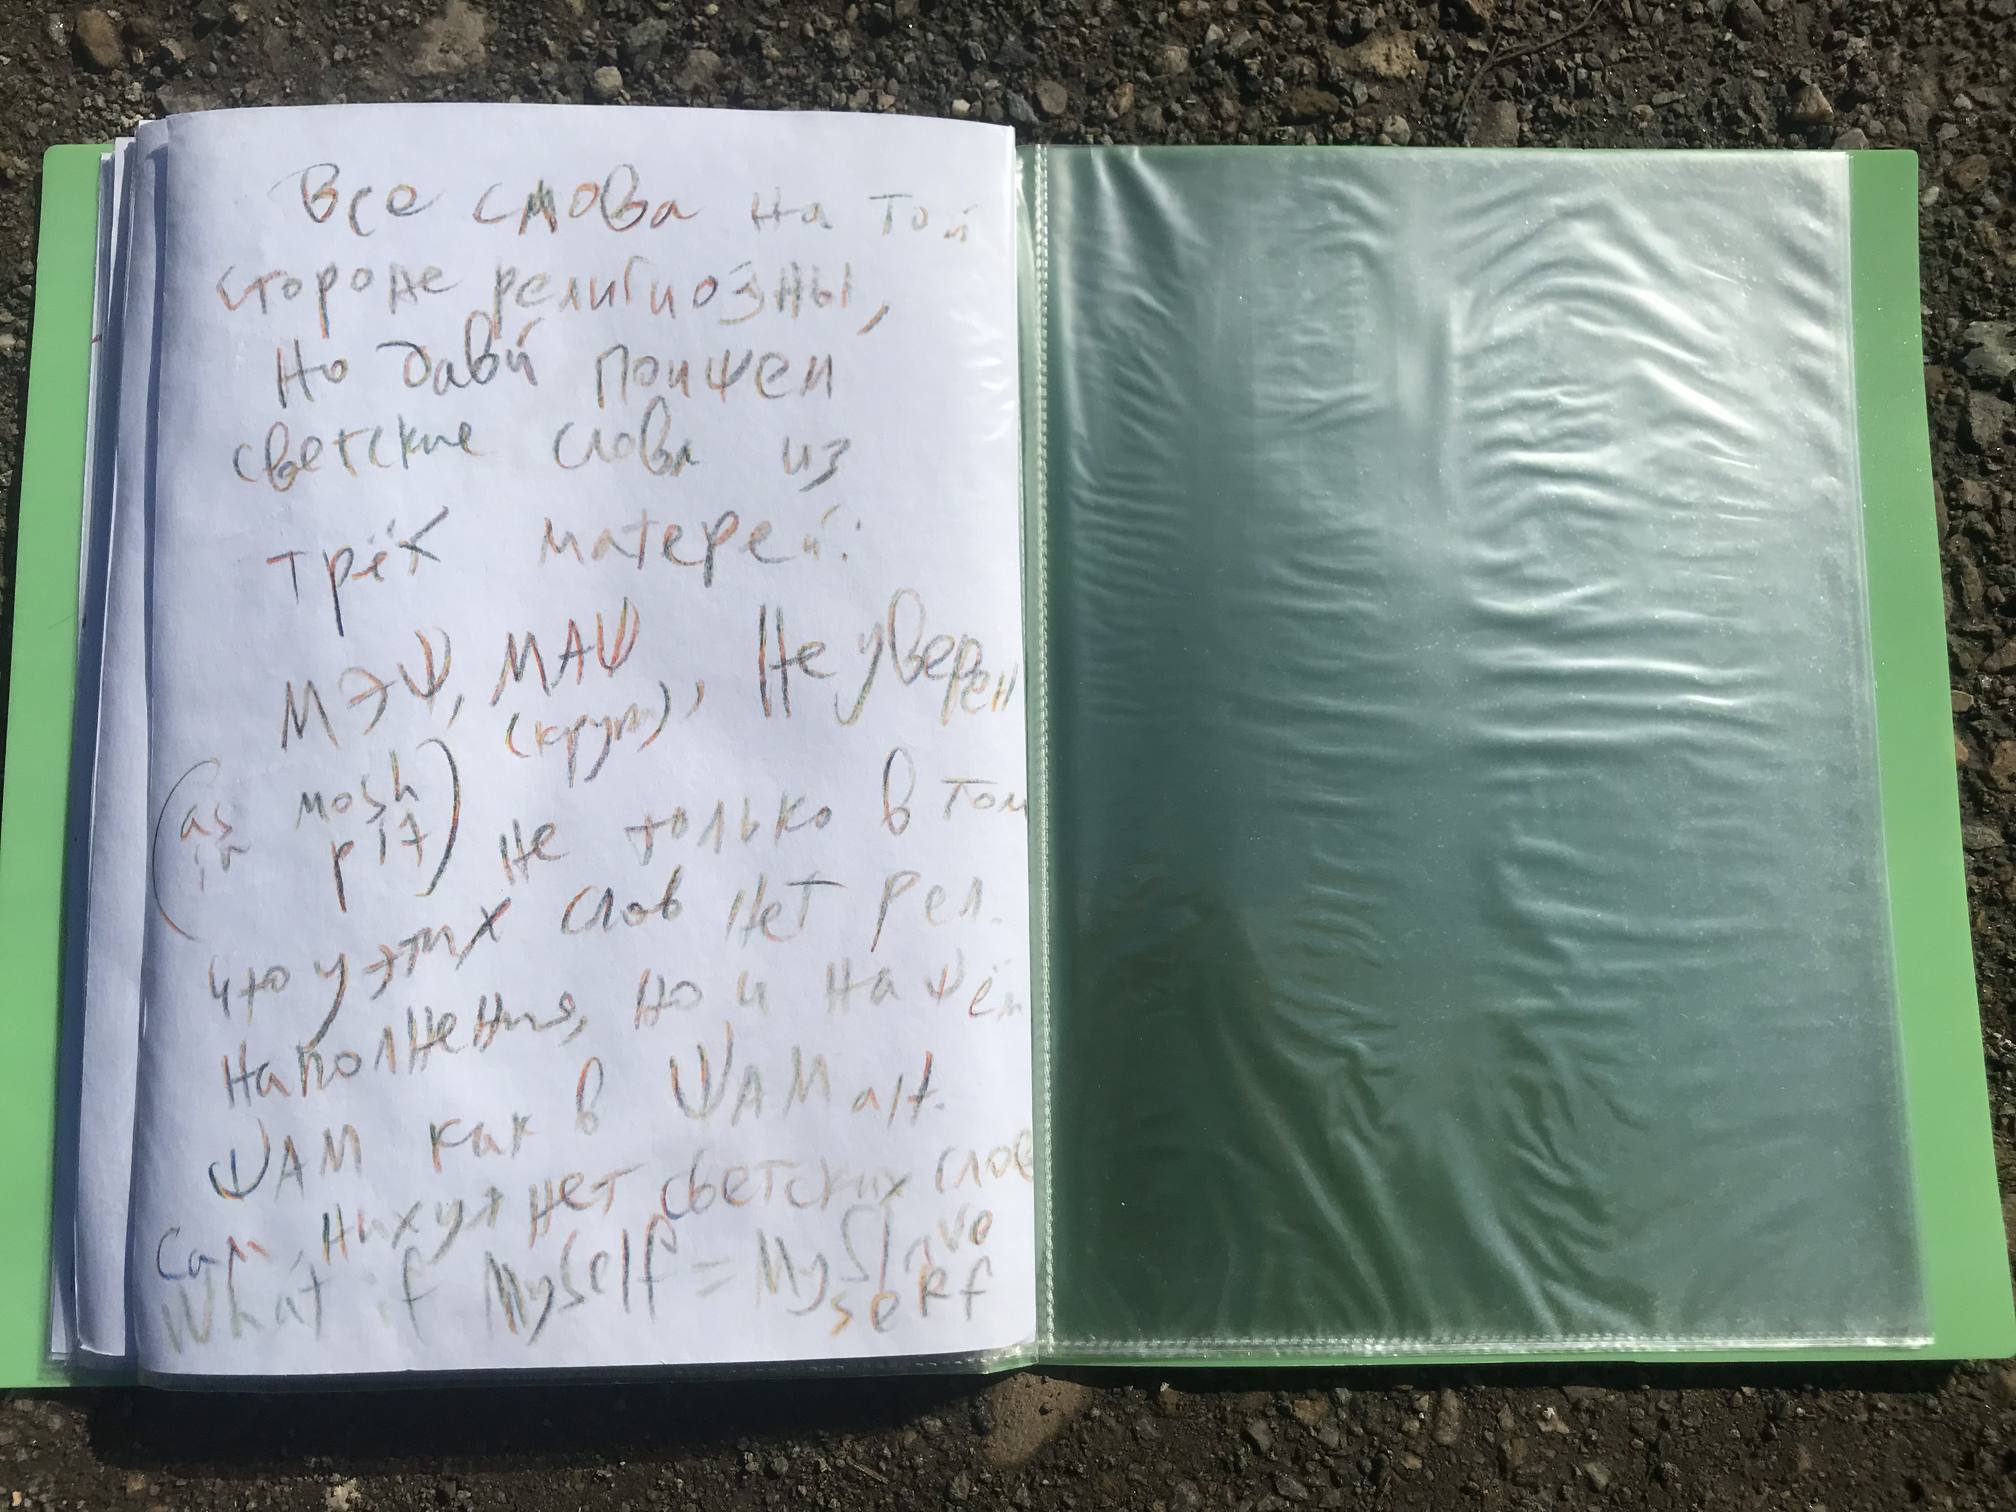 Все слова на той
стороне религиозны,
Но давй поиѱем
светские слова из
трёх матерей:
МЭѰ, МАѰ, Не уверен
(as in mosh pit) (круг)
не только в том
что у этих слов нет рел.
наполнения, но и на ѱём
ѰАМ как в ѰАМ alt.
Сам, нихуя нет светских слов
What if Myself = My Slave
serf